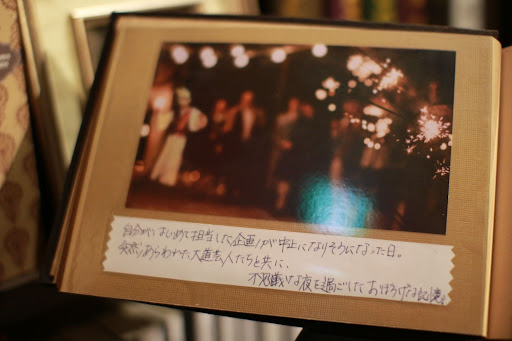 自分がはじめて担当した企画が中止になりそうになった日。
突然あらわれた大道芸人たちと共に、
不思議な夜を過ごした おぼろげな記憶。